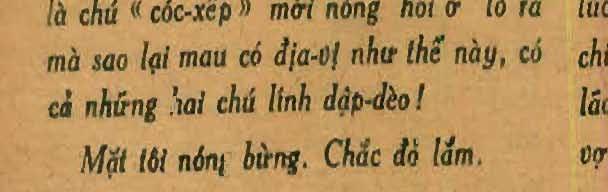 là chú « cóc-xếp » mới nóng hổi ở lò ra
mà sao lại mau có địa-vị như thế này, có
cả những hai chú lính dập-dèo!
Mặt tôi nóng bừng. Chắc đỏ lắm.